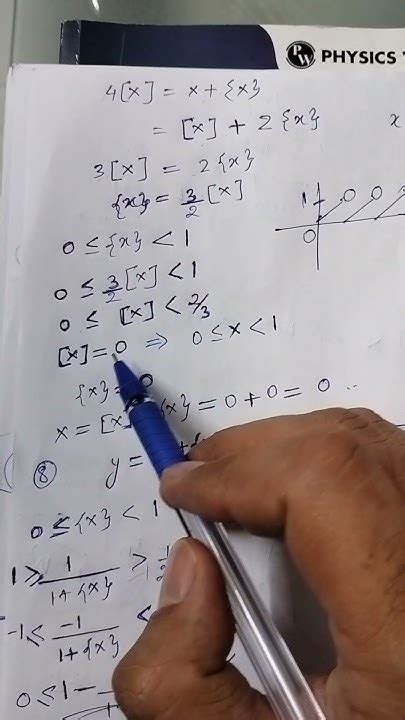 PHYSICS
4[x] = x + {x}
= [x] + 2{x}
x
3[x] = 2{x}
{x} = 3/2 [x]
1
0
0
0
0 ≤ {x} < 1
0 ≤ 3/2 [x] < 1
0 ≤ [x] < 2/3
[x] = 0 ⇒ 0 ≤ x < 1
{x} = 0
x = [x] {x} = 0 + 0 = 0
8 y =
0 ≤ {x} < 1
1 ≥ 1/1+{x} > 1/2
-1 ≤ -1/1+{x} <
0 ≤ 1 -